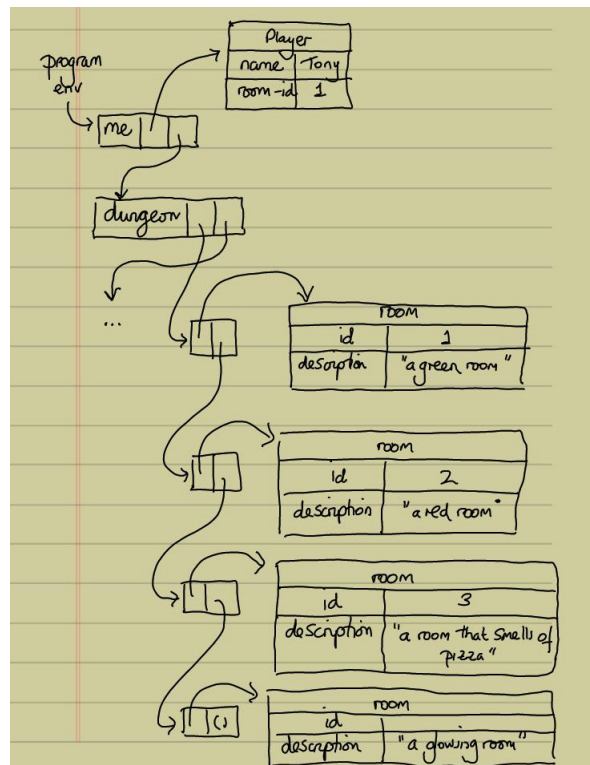 program
env
Player
name Tony
room-id 1
me
dungeon
...
room
id 1
description "a green room"
room
id 2
description "a red room"
room
id 3
description "a room that smells of
pizza"
()
room
id
description "a glowing room"